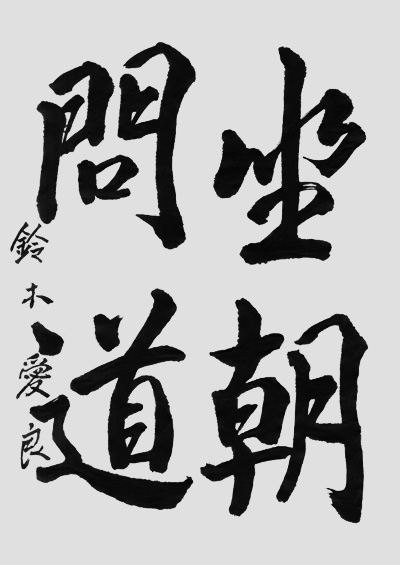 坐朝
問道
鈴木愛良